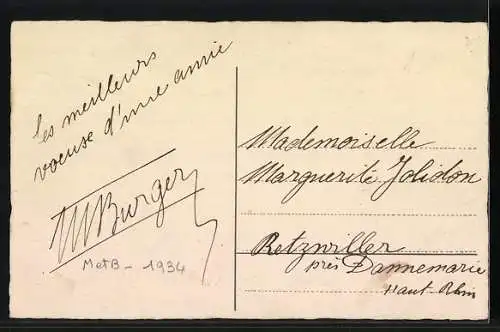 Les meilleurs
voeuse d'une amie
MBurger
MetB - 1934
Mademoiselle
Marguerite Jolidon
Retzwiller
près Dannemarie
Haut-Rhin